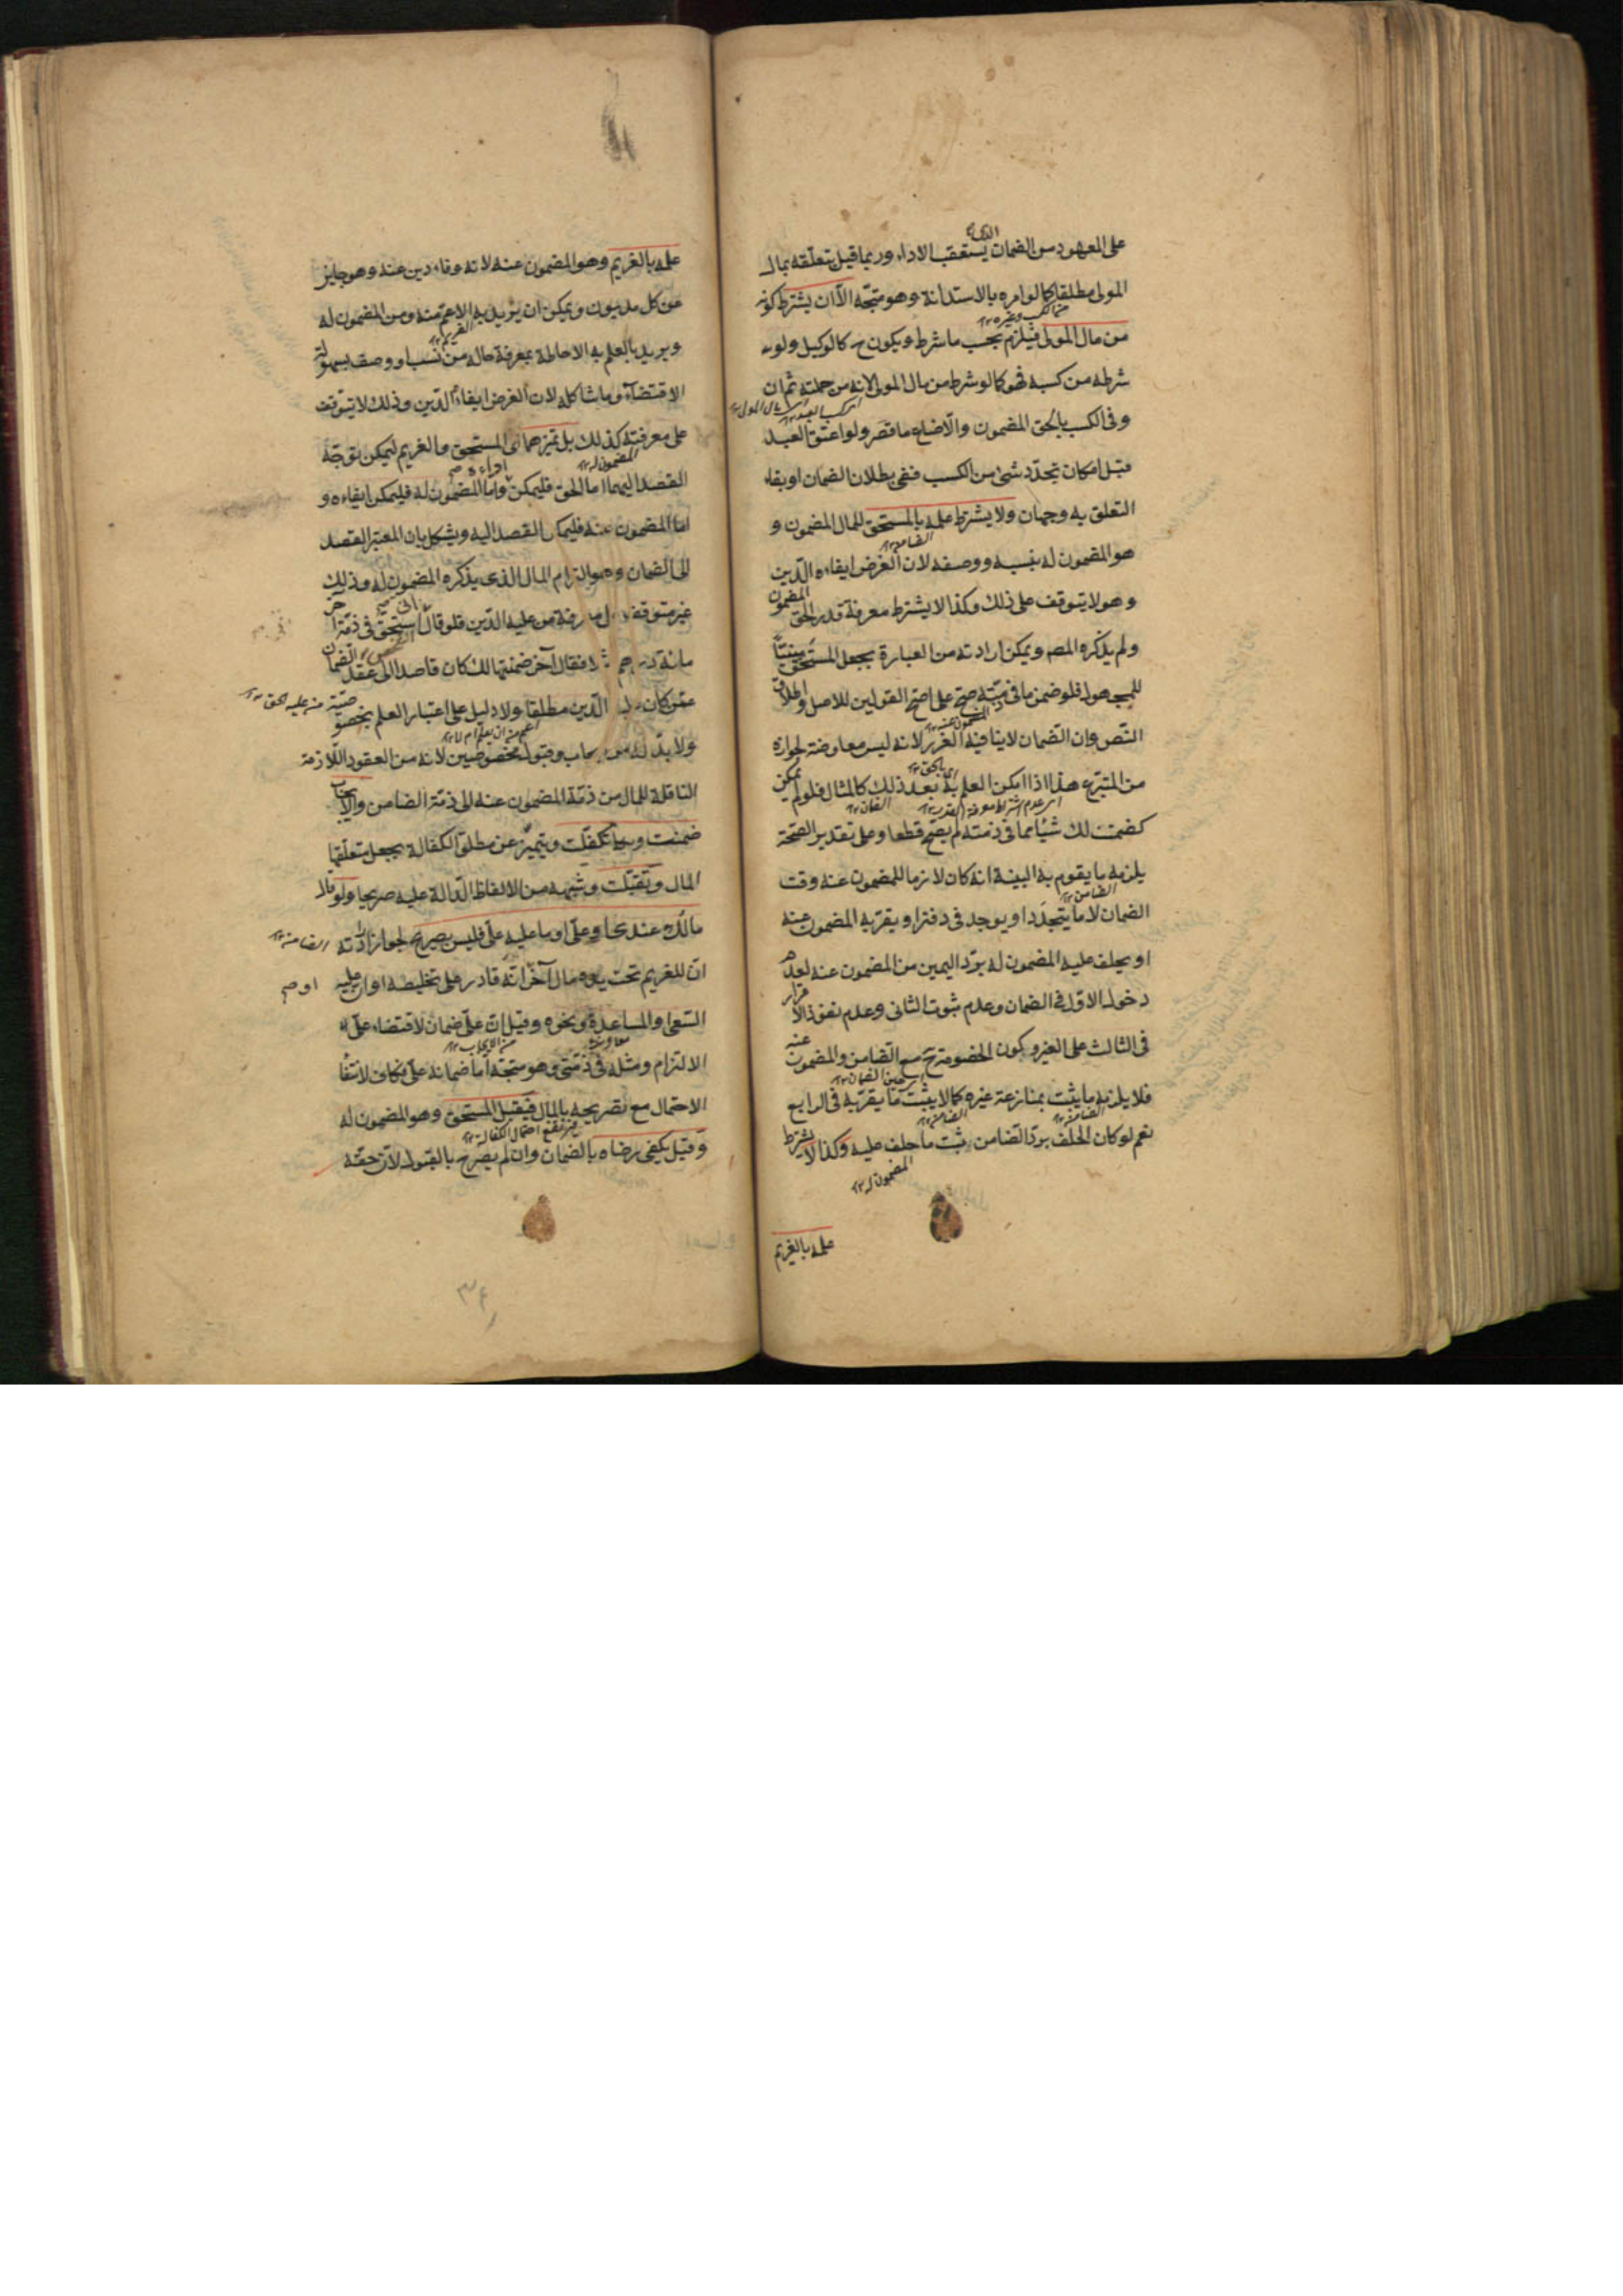 على المعهود من الضمان الذى يستعقب الاداء وربما قيل بتعلقه بمال
المولى مطلقا كما لو امره بالاستدانة وهو متجه الا ان يشترط كونه
من مال المولى فيلزم بحسب ما شرط ويكون ح كالوكيل ولو
شرطه من كسبه فهو كما لو شرط من مال المولى لانه من جملته ثم ان
وفى الكسب بالحق المضمون والا ضاع ما قصر ولو اعتق العبد
قبل امكان تجدد شئ من الكسب ففى بطلان الضمان او بقاء
التعلق به وجهان ولا يشترط علمه بالمستحق للمال المضمون و
هو المضمون له بنسبه ووصفه لان الغرض ايفاءه الدين
وهو لا يتوقف على ذلك وكذا لا يشترط معرفة قدر الحق المضمون
ولم يذكره المص ويمكن ارادته من العبارة بجعل المستحق مبنيا
للمجهول فلو ضمن ما فى ذمته صح على اصح القولين للاصل واطلاق
النص وان الضمان لا ينافيه الغرر لانه ليس معاوضة لجوازه
من المتبرع هذا اذا امكن العلم به بعد ذلك كالمثال فلو لم يمكن
كضمنت لك شيئا مما فى ذمته لم يصح قطعا وعلى تقدير الصحة
يلزمه ما يقوم به البينة انه كان لازما للمضمون عنه وقت
الضمان لا ما يتجدد او يوجد فى دفتر او يقر به المضمون عنه
او يحلف عليه المضمون له برد اليمين من المضمون عنه لعدم
دخول الاول فى الضمان وعدم ثبوت الثانى وعدم نفوذ الاقرار
فى الثالث على الغير وكون الخصومة ح مع الضامن والمضمون عنه
فلا يلزمه ما يثبت بمنازعة غيره كما لا يثبت ما يقر به فى الرابع
نعم لو كان الحلف برد الضامن ثبت ما حلف عليه وكذا لا يشترط
علمه بالغريم
علمه بالغريم وهو المضمون عنه لانه وفاء دين عنه وهو جايز
عن كل مديون ويمكن ان يريد به الاعم منه ومن المضمون له
ويريد بالعلم به الاحاطة بمعرفة حاله من نسب او وصف بسهولة
الاقتضاء وما شاكله لان الغرض ايفاء الدين وذلك لا يتوقف
على معرفته كذلك بل تميزهما اى المستحق والغريم ليمكن توجه
القصد اليهما اما الحق فليمكن اداءه واما المضمون له فليمكن ايفاءه و
اما المضمون عنه فليمكن القصد اليه ويشكل بان المعتبر القصد
الى الضمان وهو التزام المال الذى يذكره المضمون له وذلك
غير متوقف على معرفة من عليه الدين فلو قال استحق فى ذمة آخر
مائة درهم مثلا فقال آخر ضمنتها لك كان قاصدا الى عقد الضمان
عمن كان عليه الدين مطلقا ولا دليل على اعتبار العلم بخصوصيته
ولا بد له من ايجاب وقبول مخصوصين لانه من العقود اللازمة
الناقلة للمال من ذمة المضمون عنه الى ذمة الضامن والايجاب
ضمنت وتكفلت ويتميز عن مطلق الكفالة بجعل متعلقها
المال وتقبلت وشبهه من الالفاظ الدالة عليه صريحا ولو قال
مالك عندى او على او ما عليه على فليس بصريح لجواز ارادته
ان للغريم تحت يده مال آخر انه قادر على تخليصه او ان عليه
السعى او المساعدة ونحوه وقيل ان على ضمان لاقتضاء على
الالتزام ومثله فى ذمتى وهو متجه اما ضمانه على فكاف لانتفاء
الاحتمال مع تصريحه بالمال فيقبل المستحق وهو المضمون له
وقيل يكفى رضاه بالضمان وان لم يصرح بالقبول لان حقه